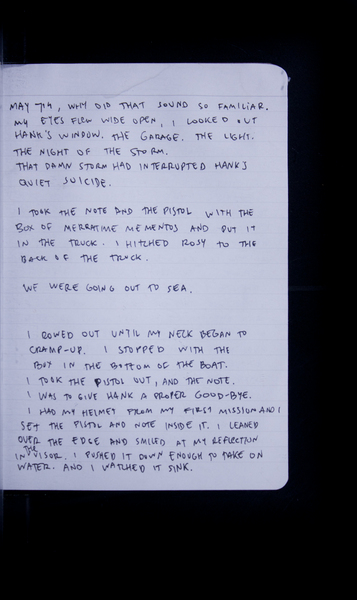 MAY 7TH, WHY DID THAT SOUND SO FAMILIAR.
MY EYES FLEW WIDE OPEN, I LOOKED OUT
HANK'S WINDOW. THE GARAGE. THE LIGHT.
THE NIGHT OF THE STORM.
THAT DAMN STORM HAD INTERRUPTED HANK'S
QUIET SUICIDE.
I TOOK THE NOTE AND THE PISTOL WITH THE
BOX OF MERRATIME MEMENTOS AND PUT IT
IN THE TRUCK. I HITCHED ROSY TO THE
BACK OF THE TRUCK.
WE WERE GOING OUT TO SEA.
I ROWED OUT UNTIL MY NECK BEGAN TO
CRAMP-UP. I STOPPED WITH THE
BOX IN THE BOTTOM OF THE BOAT.
I TOOK THE PISTOL OUT, AND THE NOTE.
I WAS TO GIVE HANK A PROPER GOOD-BYE.
I HAD MY HELMET FROM MY FIRST MISSION AND I
SET THE PISTOL AND NOTE INSIDE IT. I LEANED
OVER THE EDGE AND SMILED AT MY REFLECTION
IN THE VISOR. I PUSHED IT DOWN ENOUGH TO TAKE ON
WATER. AND I WATCHED IT SINK.